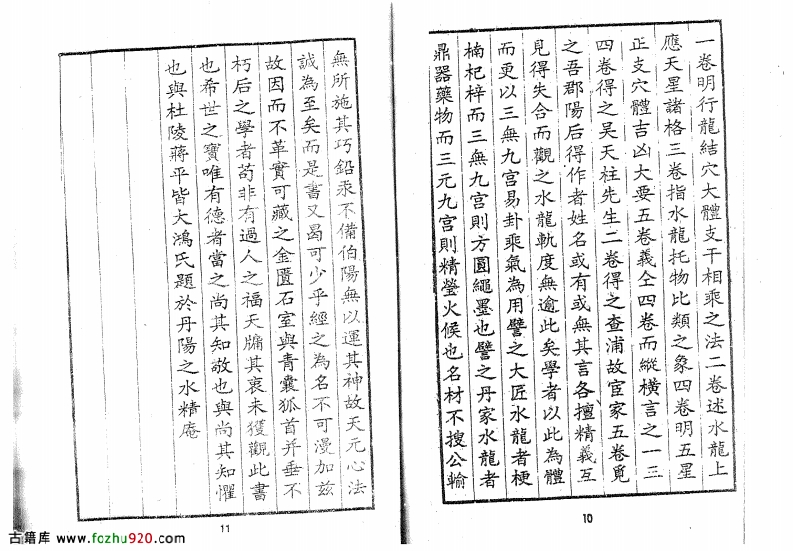 一卷明行龍結穴大體支干相乘之法二卷述水龍上
應天星諸格三卷指水龍托物比類之象四卷明五星
正支穴體吉凶大要五卷義仝四卷而縱橫言之一三
四卷得之吴天柱先生二卷得之查浦故宦家五卷覓
之吾郡陽后得作者姓名或有或無其言各擅精義互
見得失合而觀之水龍軌度無逾此矣學者以此為體
而更以三無九宫易卦乘氣為用譬之大匠水龍者梗
楠杞梓而三無九宫則方圓繩墨也譬之丹家水龍者
鼎器藥物而三元九宫則精瑩火候也名材不搜公輸
10
無所施其巧鉛汞不備伯陽無以運其神故天元心法
誠為至矣而是書又曷可少乎經之為名不可漫加兹
故因而不革實可藏之金匱石室與青囊狐首并垂不
朽后之學者苟非有過人之福天牖其衷未獲觀此書
也希世之寶唯有德者當之尚其知敬也與尚其知懼
也與杜陵蔣平皆大鴻氏題於丹陽之水精庵
11
古籍库 www.fozhu920.com